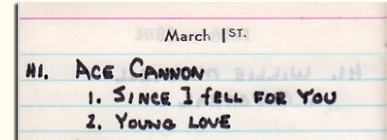 March 1ST.
HI. ACE CANNON
1. SINCE I FELL FOR YOU
2. YOUNG LOVE